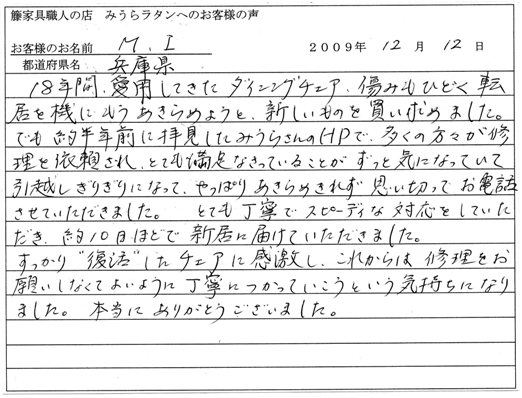 籐家具職人の店　みうらラタンへのお客様の声
お客様のお名前　M. I　2009年 12月 12日
都道府県名：兵庫県
18年間、愛用してきたダイニングチェア、傷みもひどく転
居を機にもうあきらめようと、新しいものを買い求めました。
でも約半年前に拝見したみうらさんのHPで、多くの方々が修
理を依頼され、とても満足なさっていることがずっと気になっていて
引越しぎりぎりになって、やっぱりあきらめきれず思い切ってお電話
させていただきました。　とても丁寧でスピーディな対応をしていた
だき、約10日ほどで新居に届けていただきました。
すっかり"復活"したチェアに感激し、これからは修理をお
願いしなくてよいように丁寧につかっていこうという気持ちになり
ました。　本当にありがとうございました。